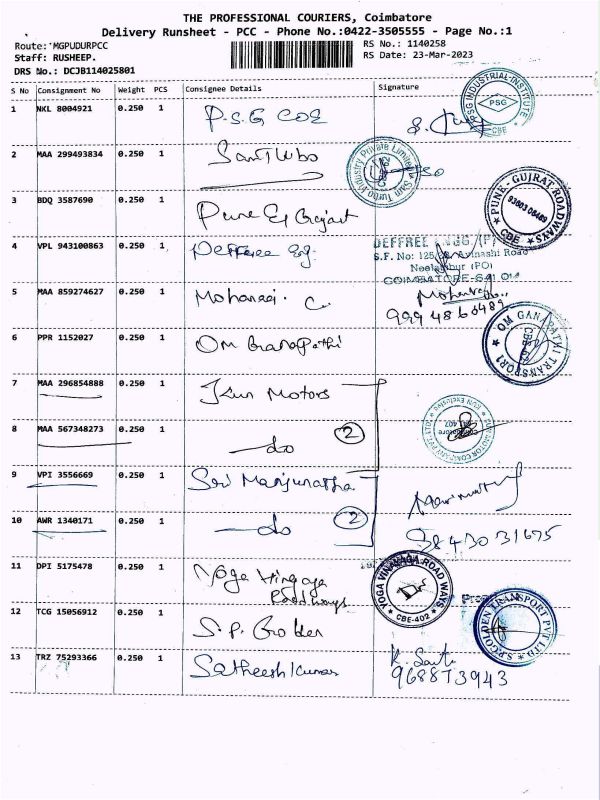 THE PROFESSIONAL COURIERS, Coimbatore
Delivery Runsheet - PCC - Phone No.:0422-3505555 - Page No.:1
Route: MGPUDURPCC
RS No.: 1140258
Staff: RUSHEEP.
RS Date: 23-Mar-2023
DRS No.: DCJB114025801
S No Consignment No Weight PCS Consignee Details Signature
1 NKL 8004921 0.250 1 P.S.G COE
PSG INDUSTRIAL INSTITUTE PSG CBE
2 MAA 299493834 0.250 1
Sun Turbo Industry Private Limited
3 BDQ 3587690 0.250 1 Pune Gujart
PUNE - GUJRAT ROADWAYS CBE
4 VPL 943100863 0.250 1
DEFFREE ENGG.
S.F. No: 125 Avinashi Road
Neelambur (PO)
COIMBATORE
5 MAA 859274627 0.250 1 Mohanraj. C.
Mohanraj
6 PPR 1152027 0.250 1 Om Ganapathi
OM GANAPATHI TRANSPORT CBE
7 MAA 296854888 0.250 1 Kun Motors
8 MAA 567348273 0.250 1 do 2
KUN MOTOR COMPANY PVT. LTD. KUN Exclusive
9 VPI 3556669 0.250 1 Sri Manjunatha
10 AWR 1340171 0.250 1 do 2
11 DPI 5175478 0.250 1 Yoga Vinyaga
Roadways
YOGA VINAYAGA ROAD WAYS CBE-402
12 TCG 15056912 0.250 1 S.P. Golden
S.P. GOLDEN TRANSPORT PVT LTD
13 TRZ 75293366 0.250 1 Satheesh Kumar
9688773943